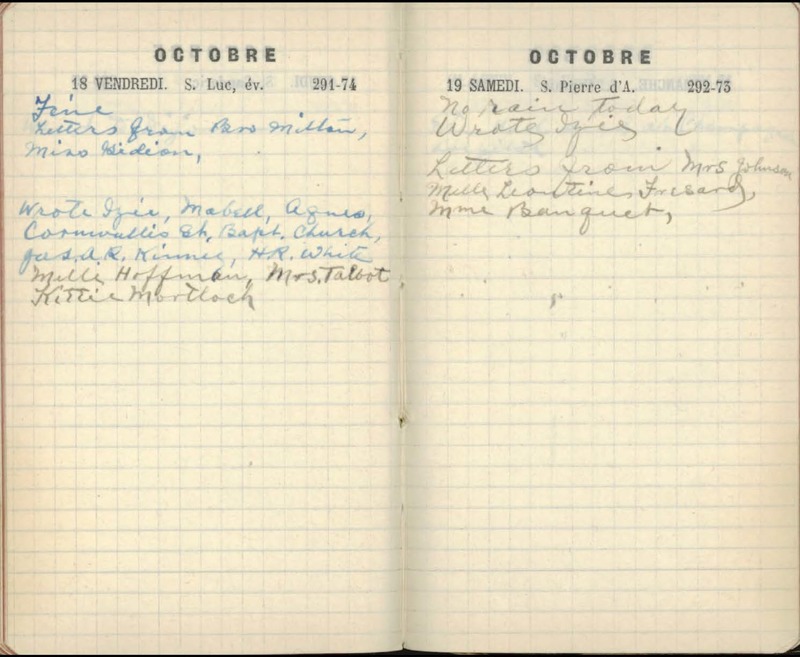 OCTOBRE
18 VENDREDI. S. Luc, év. 291-74
Fine
Letters from Bro Milton,
Miss Gideon,
Wrote Izie, Mabell, Agnes,
Cornwallis St, Bapt. Church,
Jas. A. R. Kinney, H.R. White
Melle Hoffman, Mrs. Talbot
Kittie Mortlock
OCTOBRE
19 SAMEDI. S. Pierre d'A. 292-73
No rain today
Wrote Izie
Letters from Mrs Johnson
Melle Leontines Fresard,
Mme Banquet,